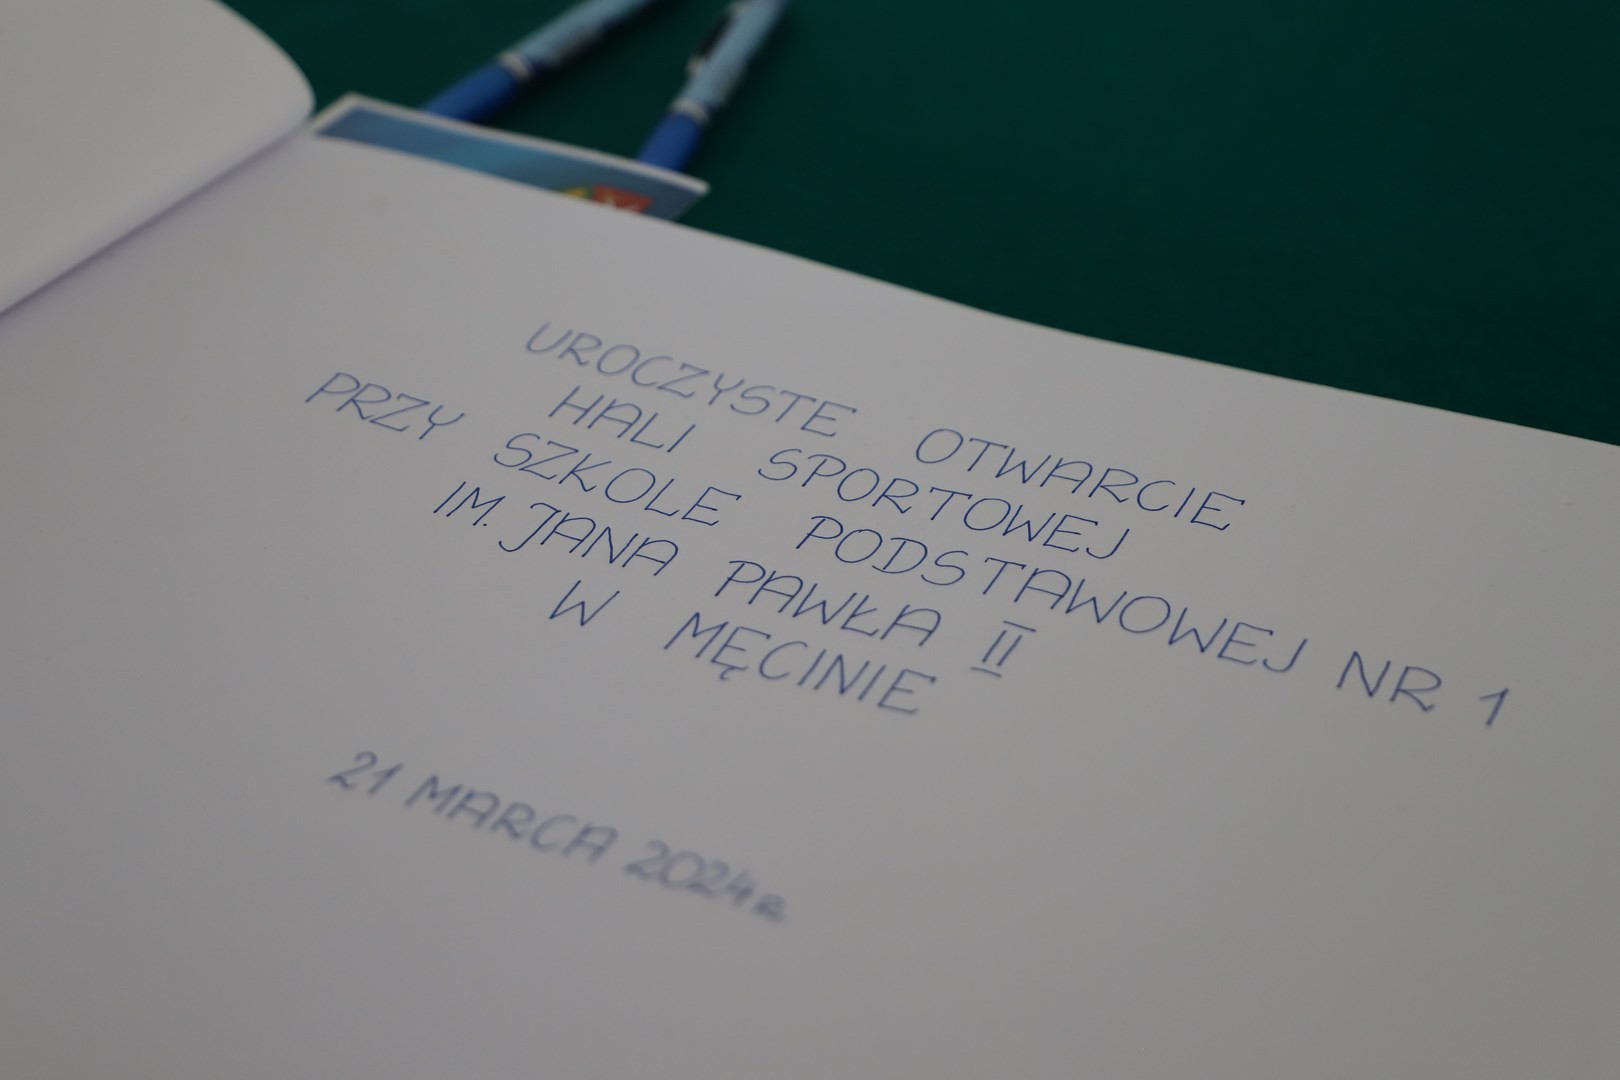 UROCZYSTE OTWARCIE
HALI SPORTOWEJ
PRZY SZKOLE PODSTAWOWEJ NR 1
IM. JANA PAWŁA II
W MĘCINIE
21 MARCA 2024 R.